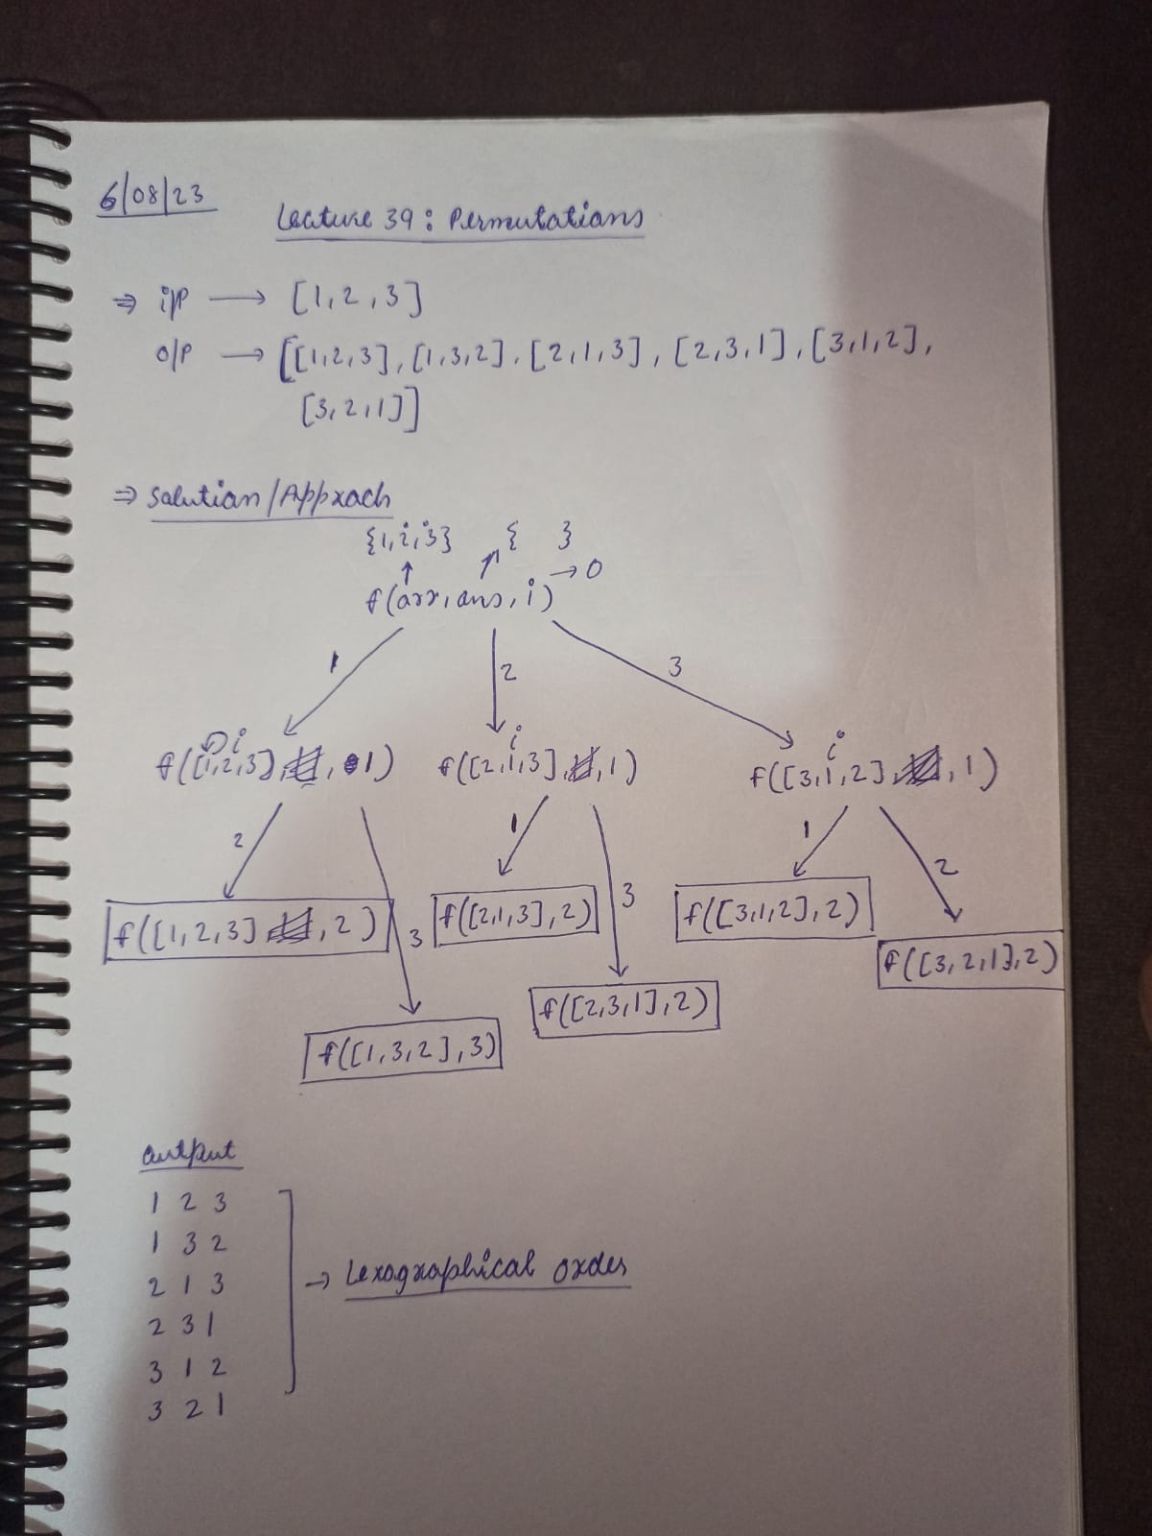 6/08/23
Lecture 39: Permutations
⇒ i/P → [1,2,3]
O/P → [[1,2,3], [1,3,2], [2,1,3], [2,3,1], [3,1,2],
[3,2,1]]
⇒ Solution/Appxach
{1,2,3} { }
f(arr, ans, i) → 0
1 2 3
i i i
f([1,2,3], , 1) f([2,1,3], , 1) f([3,1,2], , 1)
2 3 1 3 1 2
f([1,2,3] , 2) f([2,1,3],2) f([3,1,2],2)
f([3,2,1],2)
f([2,3,1],2)
f([1,3,2],3)
Output
1 2 3
1 3 2
2 1 3
→ Lexographical order
2 3 1
3 1 2
3 2 1